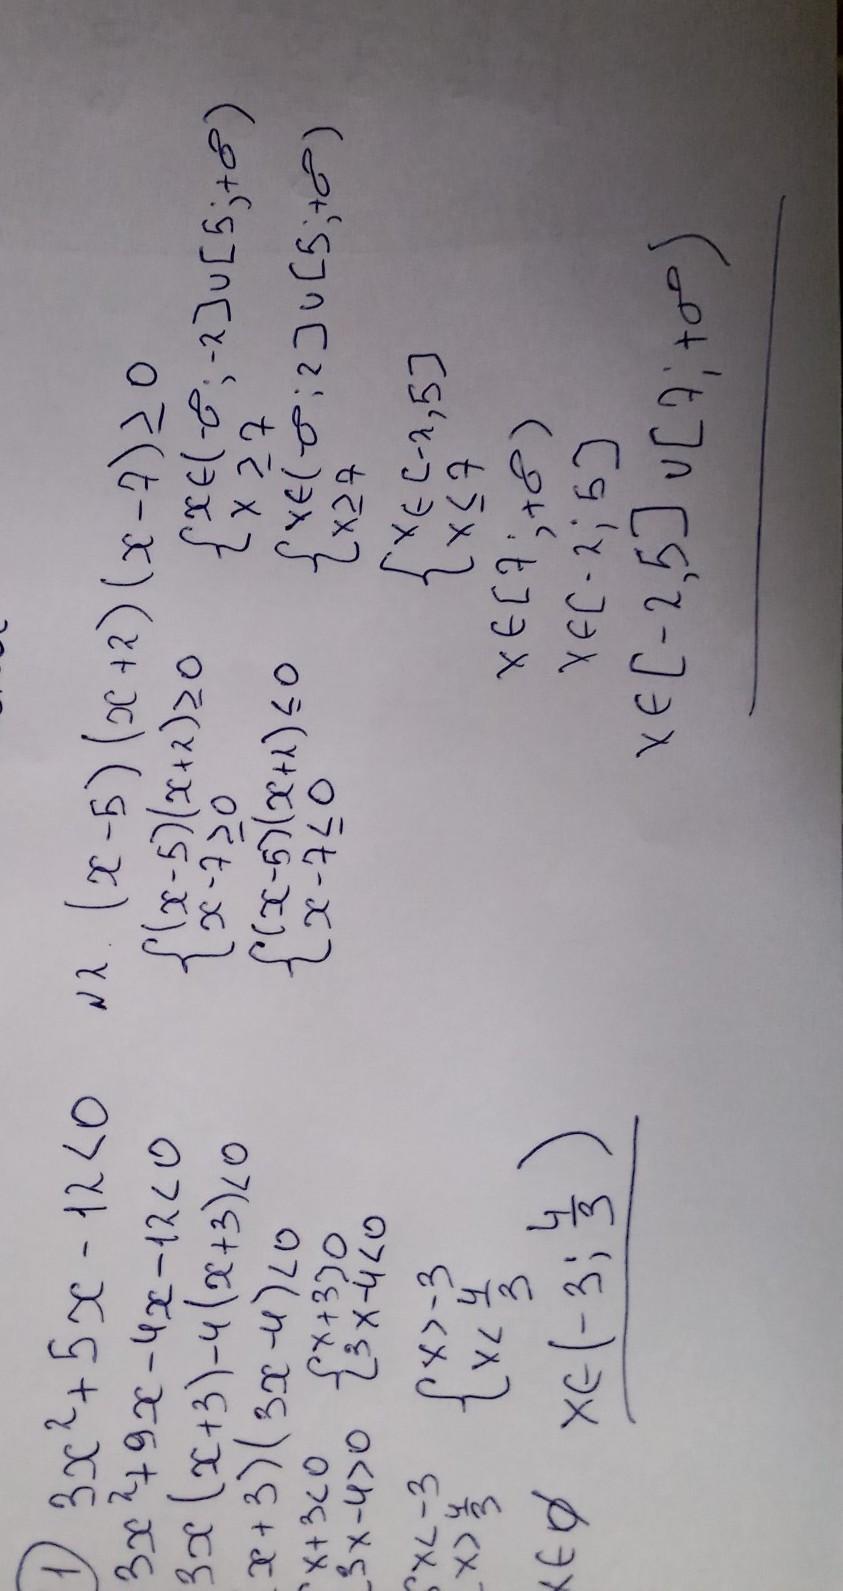 1) 3x²+5x-12<0
3x²+9x-4x-12<0
3x(x+3)-4(x+3)<0
x+3)(3x-4)<0
{x+3<0
3x-4>0
{x+3>0
3x-4<0
{x<-3
x>4/3
{x>-3
x<4/3
x∈∅
x∈(-3; 4/3)
N2. (x-5)(x+2)(x-7)≥0
{(x-5)(x+2)≥0
x-7≥0
{(x-5)(x+2)≤0
x-7≤0
{x∈(-∞;-2]∪[5;+∞)
x≥7
{x∈(-∞;2]∪[5;+∞)
x≥7
{x∈[-2,5]
x≤7
x∈[7;+∞)
x∈[-2;5]
x∈[-2,5]∪[7;+∞)